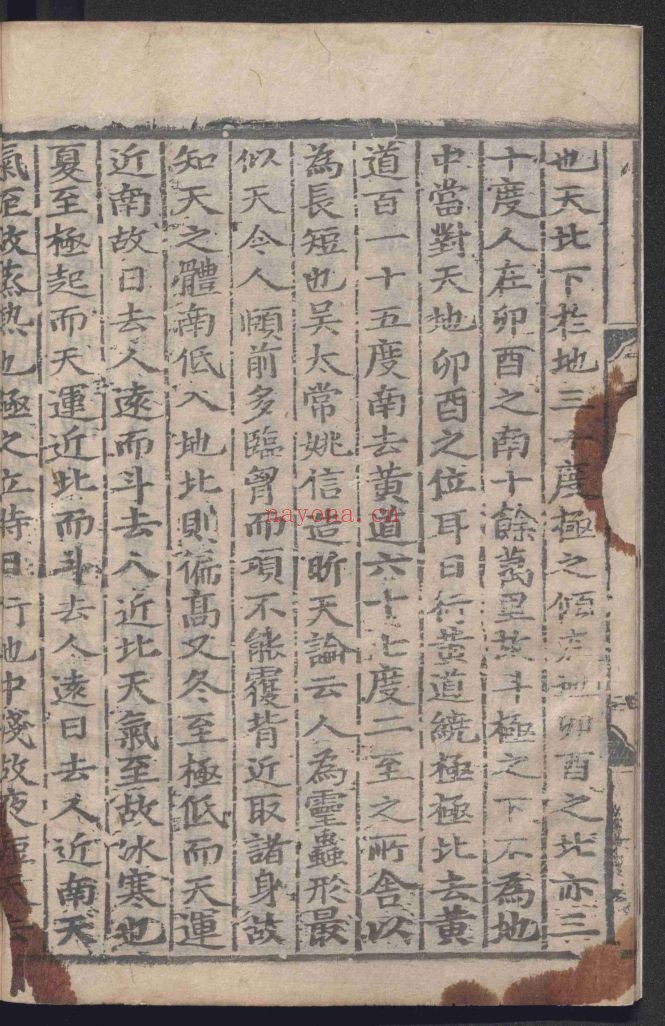 也天北下於地三十度極之傾在地卯酉之北亦三
十度人在卯酉之南十餘萬里故斗極之下不為地
中當對天地卯酉之位耳日行黃道繞極極北去黃
道百一十五度南去黃道六十七度二至之所舍以
為長短也吴太常姚信造昕天論云人為靈蟲形最
似天今人頤前多臨胷而項不能覆背近取諸身故
知天之體南低入地北則偏高又冬至極低而天運
近南故日去人遠而斗去人近北天氣至故冰寒也
夏至極起而天運近北而斗去人遠日去人近南天
氣至故蒸熱也極之立時日行地中淺故夜短天去
nayona.cn